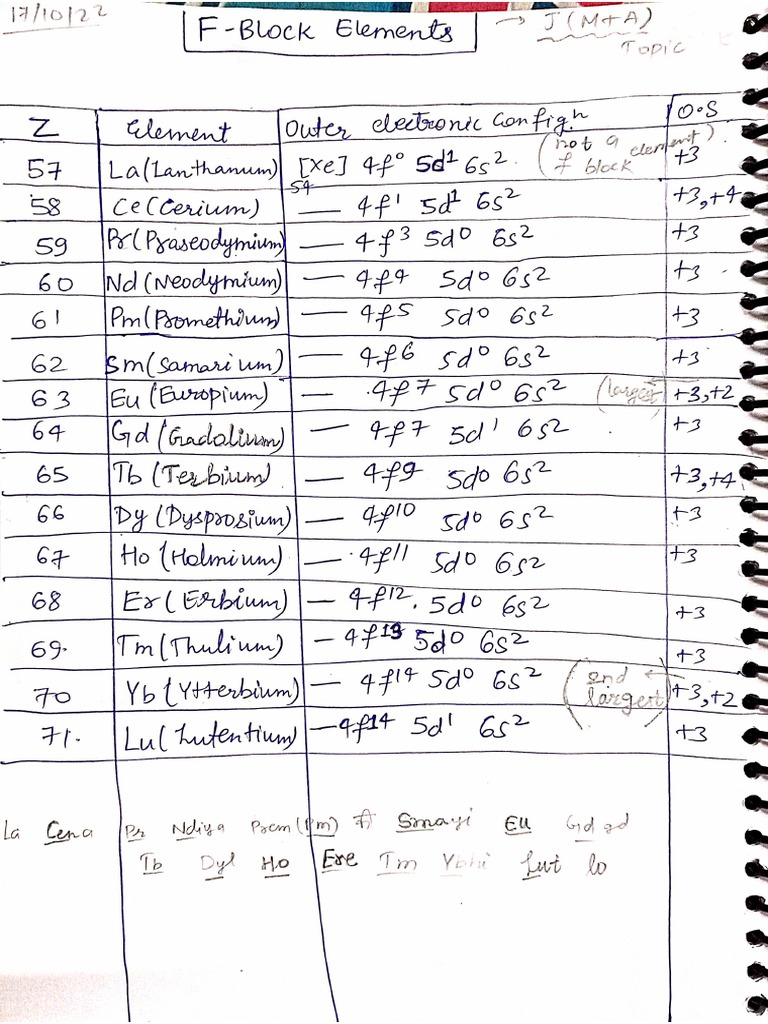 17/10/22
F-Block Elements → J(M+A)
Topic
Z Element Outer electronic Confign. O.S
57 La(Lanthanum) [Xe] 4f⁰ 5d¹ 6s² (not a element f block) +3
54
58 Ce(Cerium) — 4f¹ 5d¹ 6s² +3,+4
59 Pr(Praseodymium) — 4f³ 5d⁰ 6s² +3
60 Nd(Neodymium) — 4f4 5d⁰ 6s² +3
61 Pm(Promethium) — 4f5 5d⁰ 6s² +3
62 Sm(Samarium) — 4f6 5d⁰ 6s² +3
63 Eu(Europium) — 4f7 5d⁰ 6s² (largest) +3,+2
64 Gd(Gadolium) — 4f7 5d¹ 6s² +3
65 Tb(Terbium) — 4f9 5d⁰ 6s² +3,+4
66 Dy(Dysprosium) — 4f10 5d⁰ 6s² +3
67 Ho(Holmium) — 4f11 5d⁰ 6s2 +3
68 Er(Erbium) — 4f12. 5d⁰ 6s² +3
69. Tm(Thulium) — 4f13 5d⁰ 6s² +3
70 Yb(Ytterbium) — 4f14 5d⁰ 6s² (2nd largest) +3,+2
71. Lu(Lutentium) — 4f14 5d¹ 6s² +3
La Cena Pr Ndiya Prem(Pm) की Smayi Eu Gd gd
Tb Dyl Ho Ere Tm Ybhi Lut lo